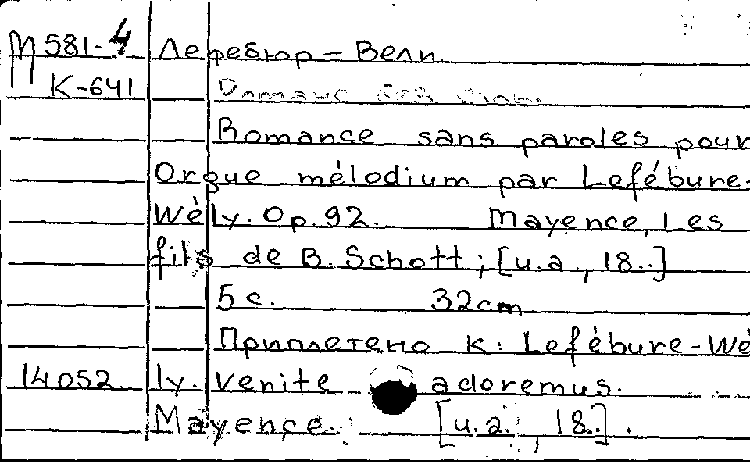 М 581-4 Лефебюр-Вели.
К-641 Романс без слов.
Romance sans paroles pour
Orgue mélodium par Lefébure-
Wély. Op. 92. Mayence, Les
fils de B. Schott; [u.a., 18..]
5 с. 32cm
Приплетено к: Lefébure-Wé
14052 ly. Venite adoremus.
Mayence. [u.a., 18..].